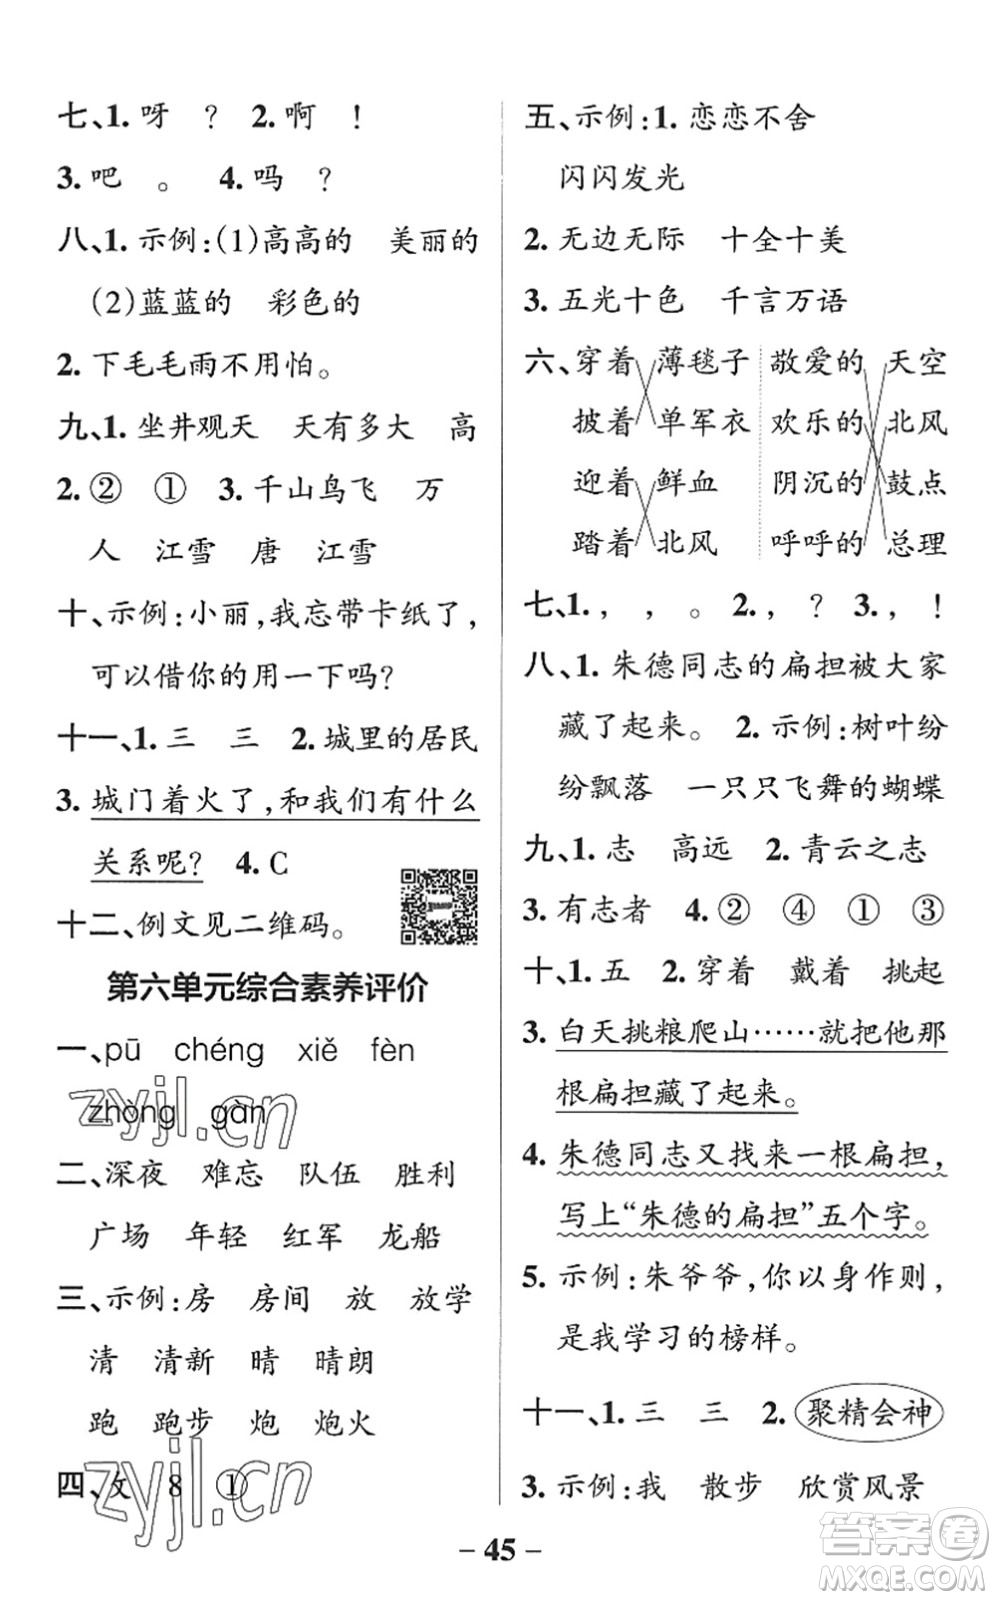 七、1. 呀 ？ 2. 啊 ！
3. 吧 。 4. 吗 ？
八、1. 示例：(1)高高的 美丽的
(2)蓝蓝的 彩色的
2. 下毛毛雨不用怕。
九、1. 坐井观天 天有多大 高
2. ② ① 3. 千山鸟飞 万
人 江雪 唐 江雪
十、示例：小丽，我忘带卡纸了，
可以借你的用一下吗？
十一、1. 三 三 2. 城里的居民
3. 城门着火了，和我们有什么
关系呢？ 4. C
十二、例文见二维码。
第六单元综合素养评价
一、pū chéng xiě fèn
zhòng gàn
二、深夜 难忘 队伍 胜利
广场 年轻 红军 龙船
三、示例：房 房间 放 放学
清 清新 晴 晴朗
跑 跑步 炮 炮火
四、攵 8 ①
五、示例：1. 恋恋不舍
闪闪发光
2. 无边无际 十全十美
3. 五光十色 千言万语
六、穿着 薄毯子 敬爱的 天空
披着 单军衣 欢乐的 北风
迎着 鲜血 阴沉的 鼓点
踏着 北风 呼呼的 总理
七、1. ， ， 。 2. ， ？ 3. ， ！
八、1. 朱德同志的扁担被大家
藏了起来。 2. 示例：树叶纷
纷飘落 一只只飞舞的蝴蝶
九、1. 志 高远 2. 青云之志
3. 有志者 4. ② ④ ① ③
十、1. 五 2. 穿着 戴着 挑起
3. 白天挑粮爬山……就把他那
根扁担藏了起来。
4. 朱德同志又找来一根扁担，
写上“朱德的扁担”五个字。
5. 示例：朱爷爷，你以身作则，
是我学习的榜样。
十一、1. 三 三 2. 聚精会神
3. 示例：我 散步 欣赏风景
– 45 –
zyjl.cn
zyjl.cn
答案卷
MXQE.COM